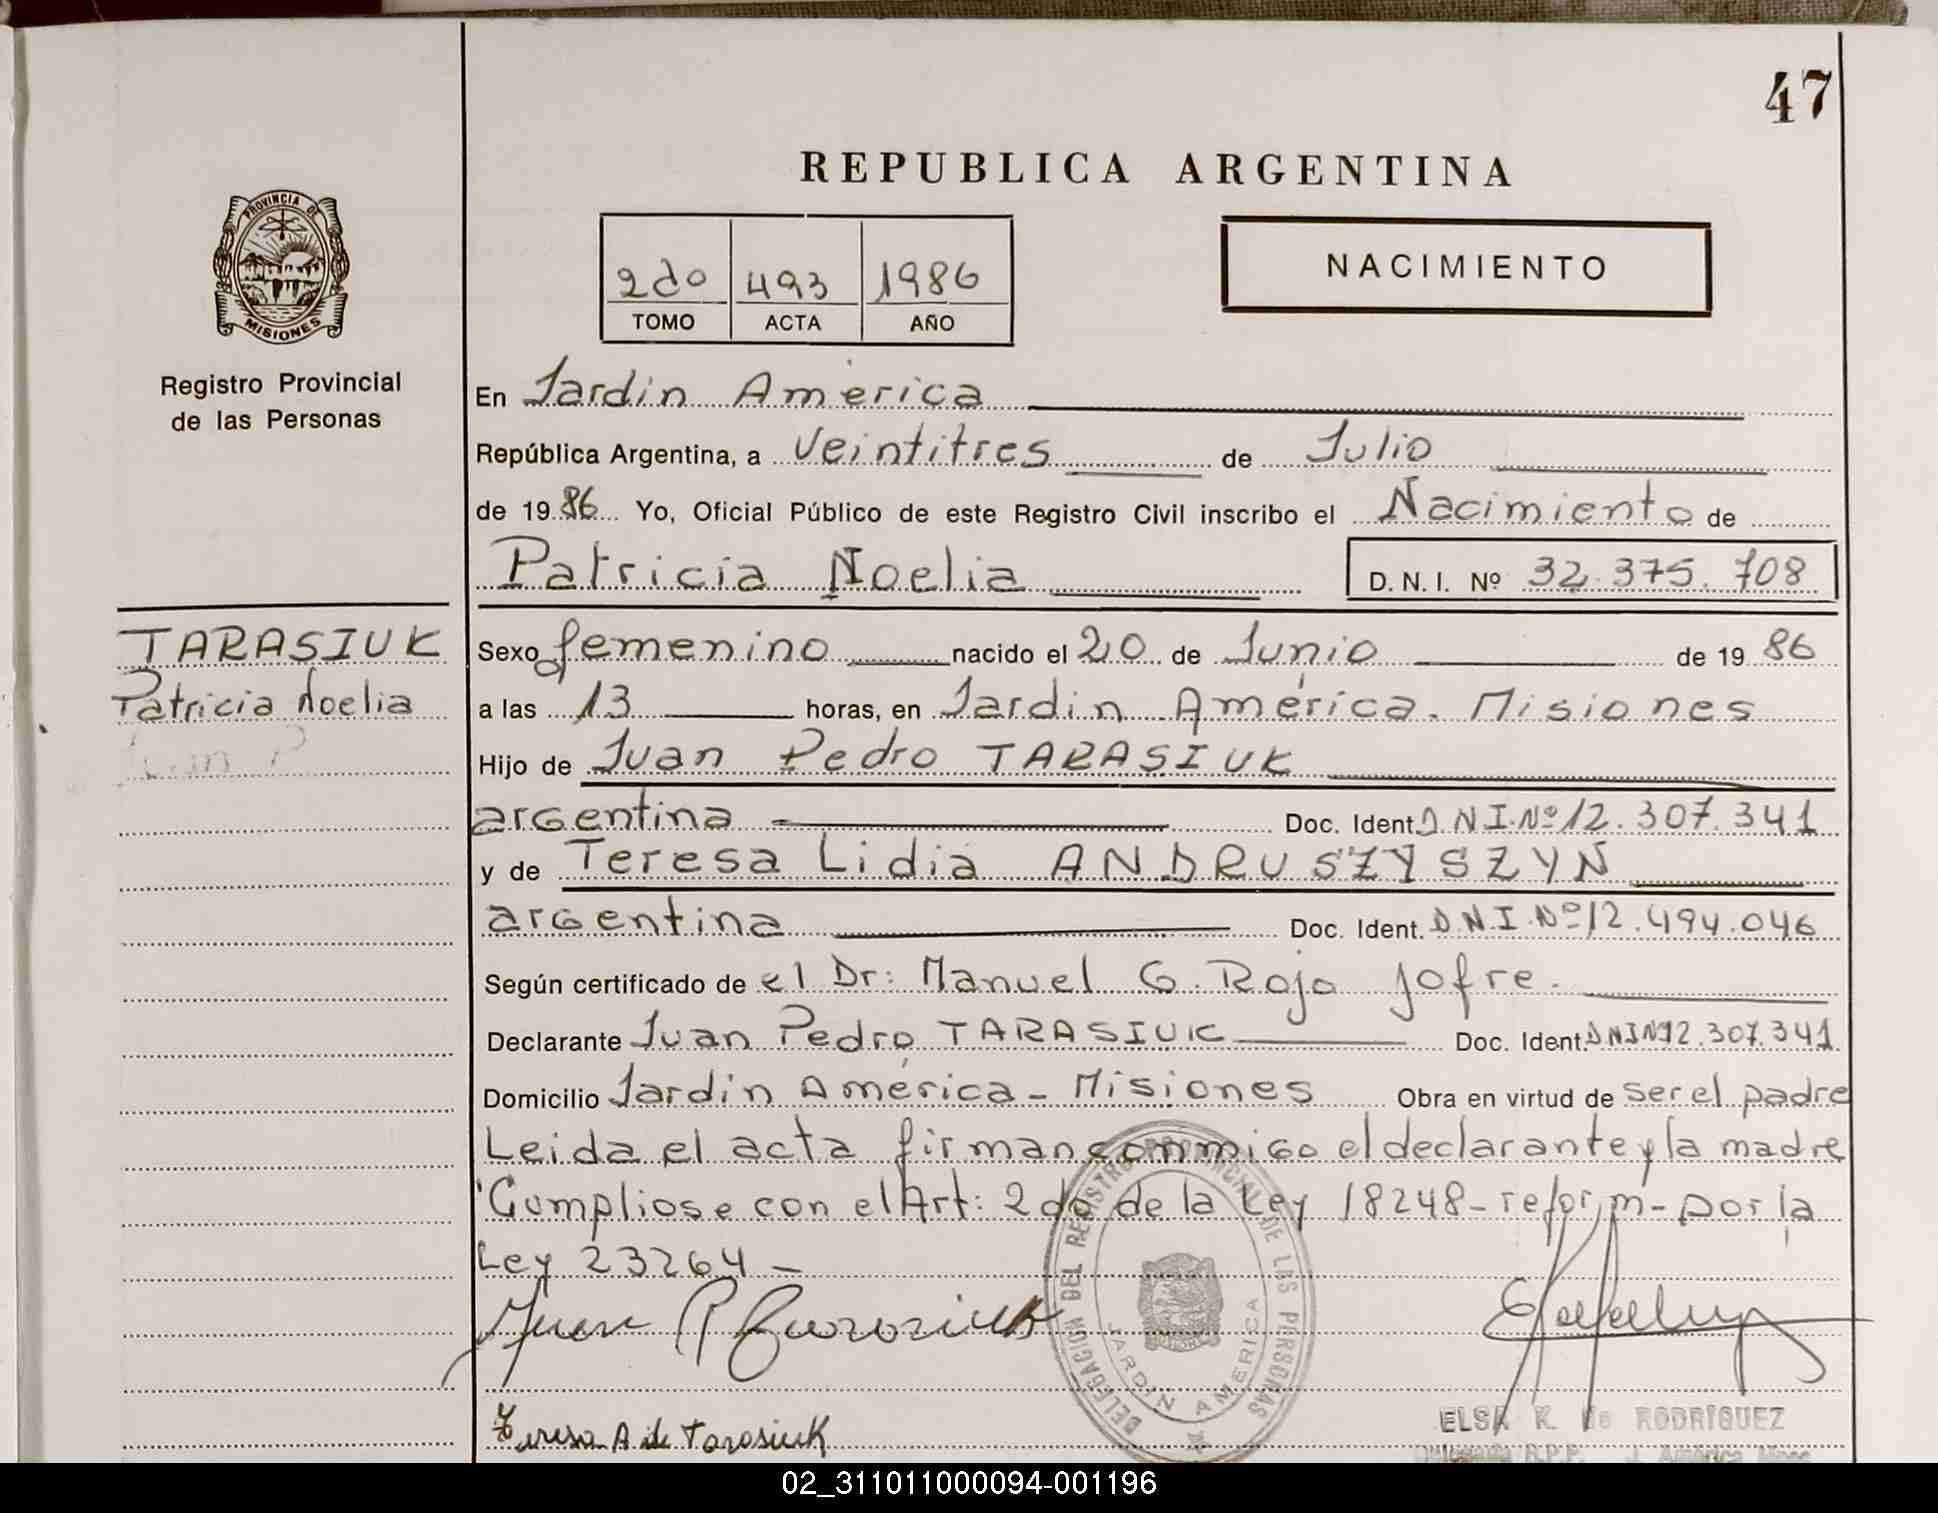 47
REPUBLICA ARGENTINA
PROVINCIA DE
MISIONES
2do 493 1986
TOMO ACTA AÑO
NACIMIENTO
Registro Provincial
de las Personas
En Jardin America
República Argentina, a veintitres de Julio
de 19 86 Yo, Oficial Público de este Registro Civil inscribo el Nacimiento de
Patricia Noelia D. N. I. Nº 32.375.708
TARASIUK
Patricia Noelia
Sexo femenino nacido el 20 de Junio de 19 86
a las 13 horas, en Jardin América. Misiones
Hijo de Juan Pedro TARASIUK
argentina Doc. Ident. D.N.I.Nº 12.307.341
y de Teresa Lidia ANDRUSZYSZYN
argentina Doc. Ident. D.N.I.Nº 12.494.046
Según certificado de el Dr: Manuel G. Rojo Jofre.
Declarante Juan Pedro TARASIUK Doc. Ident. DNINº12.307.341
Domicilio Jardin América - Misiones Obra en virtud de ser el padre
Leida el acta firman conmigo el declarante y la madre
Cumpliose con el Art: 2do de la Ley 18248-reform- por la
Ley 23264 -
DELEGACION DEL REGISTRO PROVINCIAL DE LAS PERSONAS
JARDIN AMERICA
Juan P Tarasiuk
Teresa A de Tarasiuk
ELSA K. de RODRIGUEZ
Delegada R.P.P. J. América Mnes
02_311011000094-001196